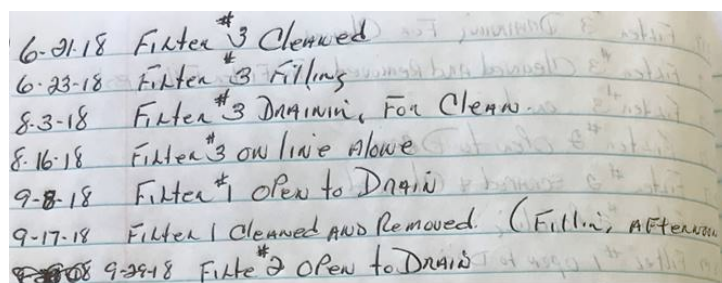 6-21-18 Filter #3 Cleaned
6-23-18 Filter #3 Filling
8-3-18 Filter #3 Drainin, For Clean.
8-16-18 Filter #3 on line Alone
9-8-18 Filter #1 open to Drain
9-17-18 Filter 1 Cleaned AND Removed. (Fillin, Afternoon
9-29-18 Filte #2 open to Drain